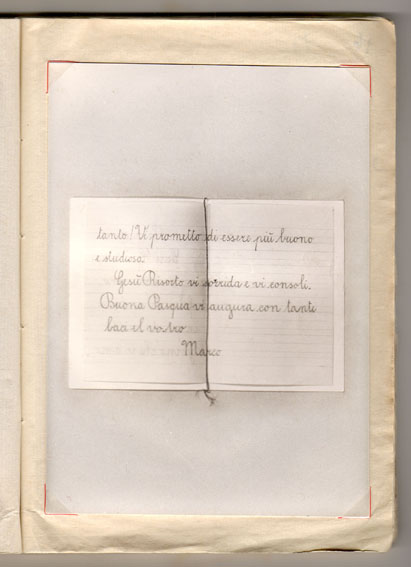 tanto! Vi prometto di essere più buono
e studioso.
Gesù Risorto vi sorrida e vi consoli.
Buona Pasqua vi augura con tanti
baci il vostro
Marco